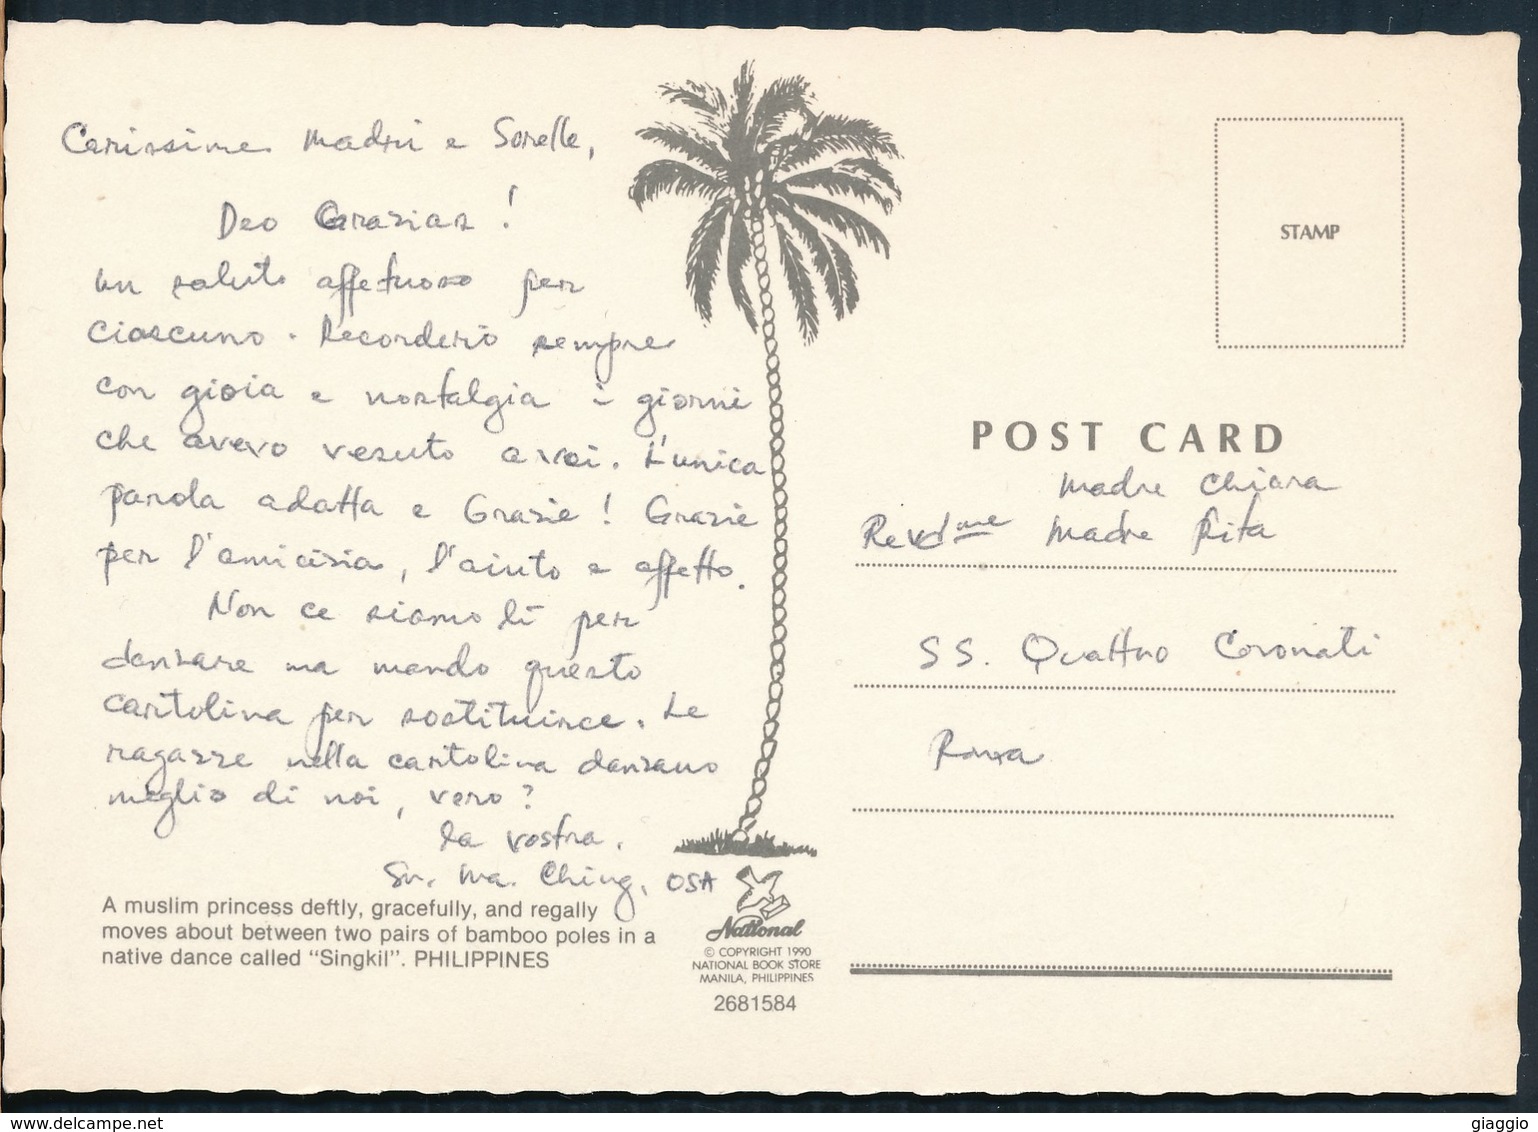 Carissime Madri e Sorelle,
Deo Grazias!
un saluto affetuoso per
ciascuno. Recorderò sempre
con gioia e nostalgia i giorni
che avevo vesuto a voi. L'unica
parola adatta e Grazie! Grazie
per l'amicizia, l'aiuto e affetto.
Non ce siamo lì per
danzare ma mando questo
cartolina per sostituirce. Le
ragazze nella cartolina danzano
meglio di noi, vero?
la vostra.
Sr. Ma. Ching, OSA
A muslim princess deftly, gracefully, and regally
moves about between two pairs of bamboo poles in a
native dance called "Singkil". PHILIPPINES
National
© COPYRIGHT 1990
NATIONAL BOOK STORE
MANILA, PHILIPPINES
2681584
STAMP
POST CARD
Madre Chiara
Revd me Madre Rita
SS. Quattro Coronati
Roma
delcampe.net
giaggio